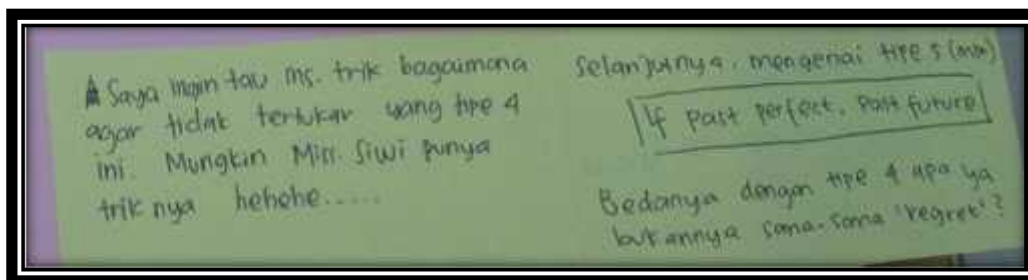 Saya ingin tau ms. trik bagaimana
agar tidak tertukar yang tipe 4
ini. Mungkin Miss. Siwi punya
trik nya hehehe.....
Selanjutnya, mengenai tipe 5 (mix)
If past perfect, past future
Bedanya dengan tipe 4 apa ya
bukannya sama-sama 'regret'?